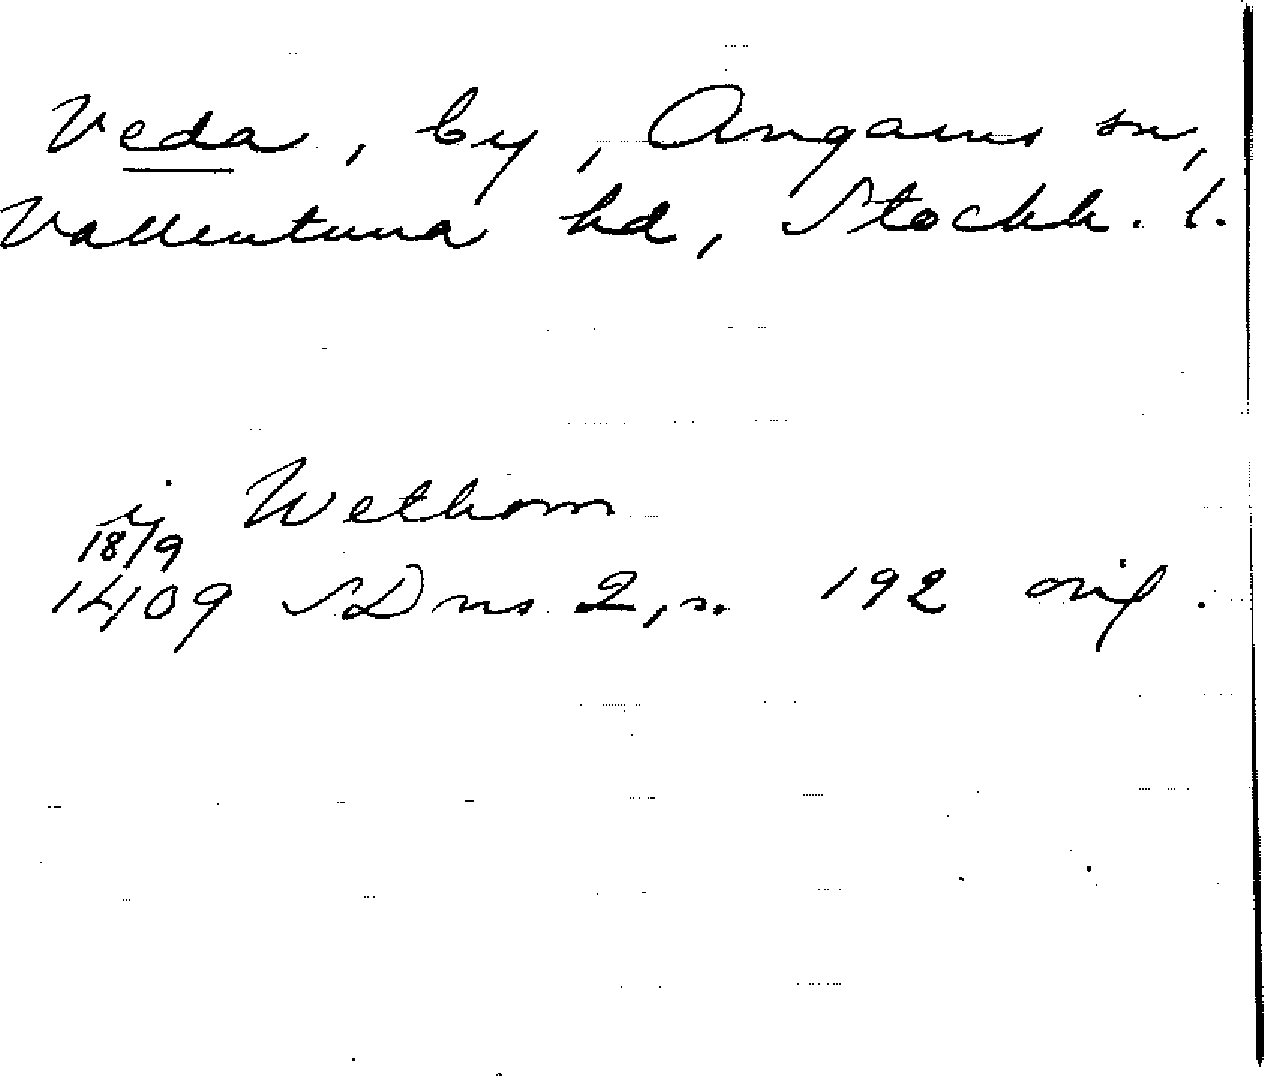 Veda, by, Angarns sn,
Vallentuna hd, Stockh. l.
i Wethom
18/9
1409 SDns 2, s. 192 orig.